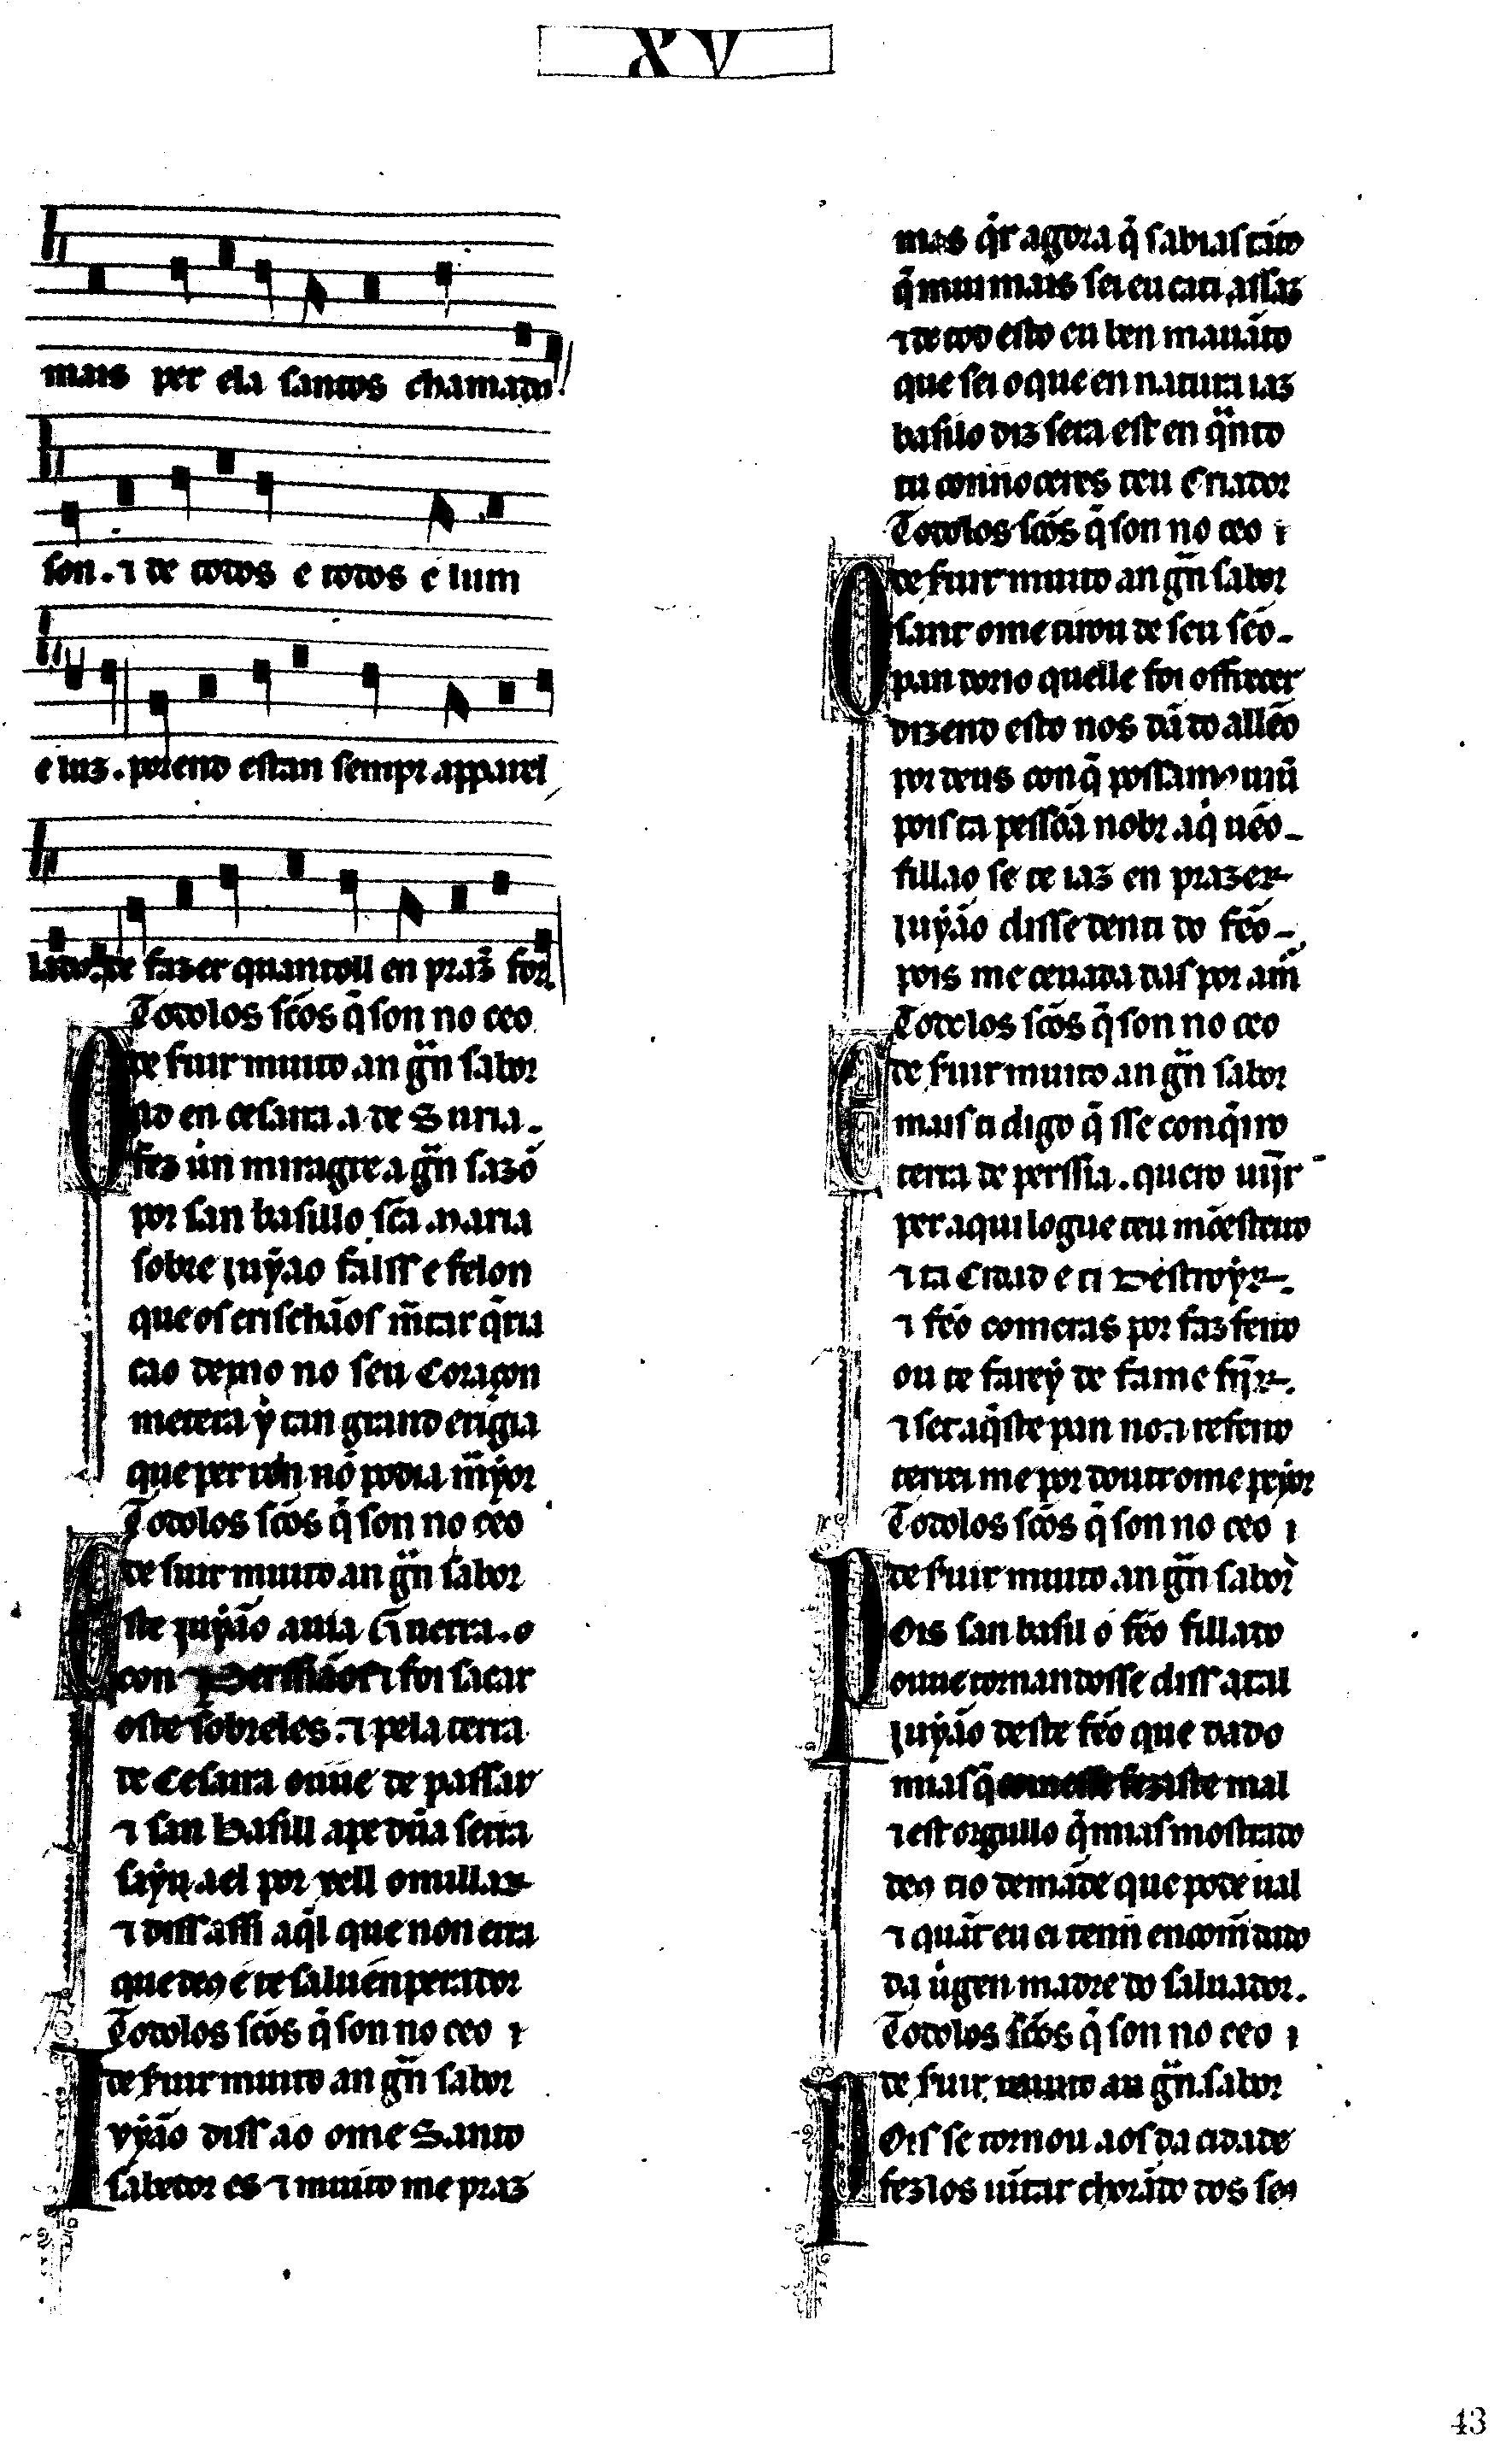 XV
mais per ela santos chamado
son. ⁊ de todos e todos é lum
e luz. porend estan sempr apparel
lado. de fazer quantoll en praz̃ for.
Todolos sc̃os q̃ son no ceo
de s̃uir muito an gr̃n sabor
nd en cesaira a de Suria.
fez ũn miragre a gr̃n sazõ
por san basillo sc̃a Maria
sobre juỹao falss e felon
que os crischãos m̃tar q̃ria
cao demo no seu Coraçon
metera ẏ tan grand erigia
que per ren nõ podia m̃yor
Todolos sc̃os q̃ son no ceo
de s̃uir muito an gr̃n sabor
ste juyão avia gr̃n erra. o
con Perssiãos ⁊ foi sacar
oste sobreles. ⁊ pela terra
de Cesaira ouue de passar
⁊ san Basill a pe dũa serra
saýu a el por rell omillar
⁊ diss assi aq̃l que non erra
que deꝯ é te salu ẽnperador
Todolos sc̃os q̃ son no ceo ⁊
de s̃uir muito an gr̃n sabor
vyão diss ao ome Santo
sabedor es ⁊ muito me praz
mas q̃r agora q̃ sabias tãto
q̃ mui mais sei eu ca ti assaz
⁊ de tod esto eu ben m auãto
que sei o que en natura iaz
basilo diz sera est en q̃nto
tu connoceres teu Criador
Todolos sc̃os q̃ son no ceo ⁊
de s̃uir muito an gr̃n sabor
sant ome tirou de seu sẽo
pan dorio quelle foi offrecer
dizend esto nos dã do allẽo
por deus con q̃ possamꝯ uiũ
pois ta pessõa nobr aq̃ uẽo
fillao se te iaz en prazer
juỹao disse denti do fẽo
pois me ceuada das por am̃
Todolos sc̃os q̃ son no ceo
de s̃uir muito an gr̃n sabor
mais ti digo q̃ sse conq̃iro
terra de perssia. quero uĩjr
per aqui logue teu mõesteiro
⁊ ta Cidad e ti Destroýr
⁊ fẽo comeras por fazfeiro
ou te farey de fame fĩjr
⁊ se t aq̃ste pan non refeiro
terrei me por doutr ome peyor
Todolos sc̃os q̃ son no ceo ⁊
de s̃uir muito an gr̃n sabor
ois san basil o fẽo fillado
ouue tornandosse diss atal
juyão deste fẽo que dado
mias q̃ comesse feziste mal
⁊ est orgullo q̃ mias mostrado
deꝯ tio demãde que pode ual
⁊ quãt eu ei tenn encom̃dado
da ũgen madre do saluador.
Todolos sc̃os q̃ son no ceo ⁊
de s̃uir muito an gr̃n sabor
ois se tornou aos da cidade
fezlos iũtar chorãdo dos seꝯ
43